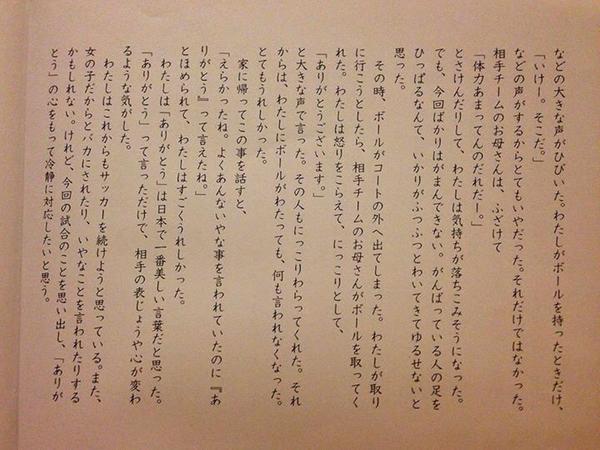 などの大きな声がひびいた。わたしがボールを持ったときだけ、
「いけー。そこだ。」
などの声がするからとてもいやだった。それだけではなかった。
相手チームのお母さんは、ふざけて
「体力あまってんのだれだー。」
とさけんだりして、わたしは気持ちが落ちこみそうになった。
でも、今回ばかりはがまんできない。がんばっている人の足を
ひっぱるなんて、いかりがふつふつとわいてきてゆるせないと
思った。
その時、ボールがコートの外へ出てしまった。わたしが取り
に行こうとしたら、相手チームのお母さんがボールを取ってく
れた。わたしは怒りをこらえて、にっこりとして、
「ありがとうございます。」
と大きな声で言った。その人もにっこりわらってくれた。それ
からは、わたしにボールがわたっても、何も言われなくなった。
とてもうれしかった。
家に帰ってこの事を話すと、
「えらかったね。よくあんないやな事を言われていたのに『あ
りがとう』って言えたね。」
とほめられて、わたしはすごくうれしかった。
わたしは「ありがとう」は日本で一番美しい言葉だと思った。
「ありがとう」って言っただけで、相手の表じょうや心が変わ
るような気がした。
わたしはこれからもサッカーを続けようと思っている。また、
女の子だからとバカにされたり、いやなことを言われたりする
かもしれない。けれど、今回の試合のことを思い出し、「ありが
とう」の心をもって冷静に対応したいと思う。